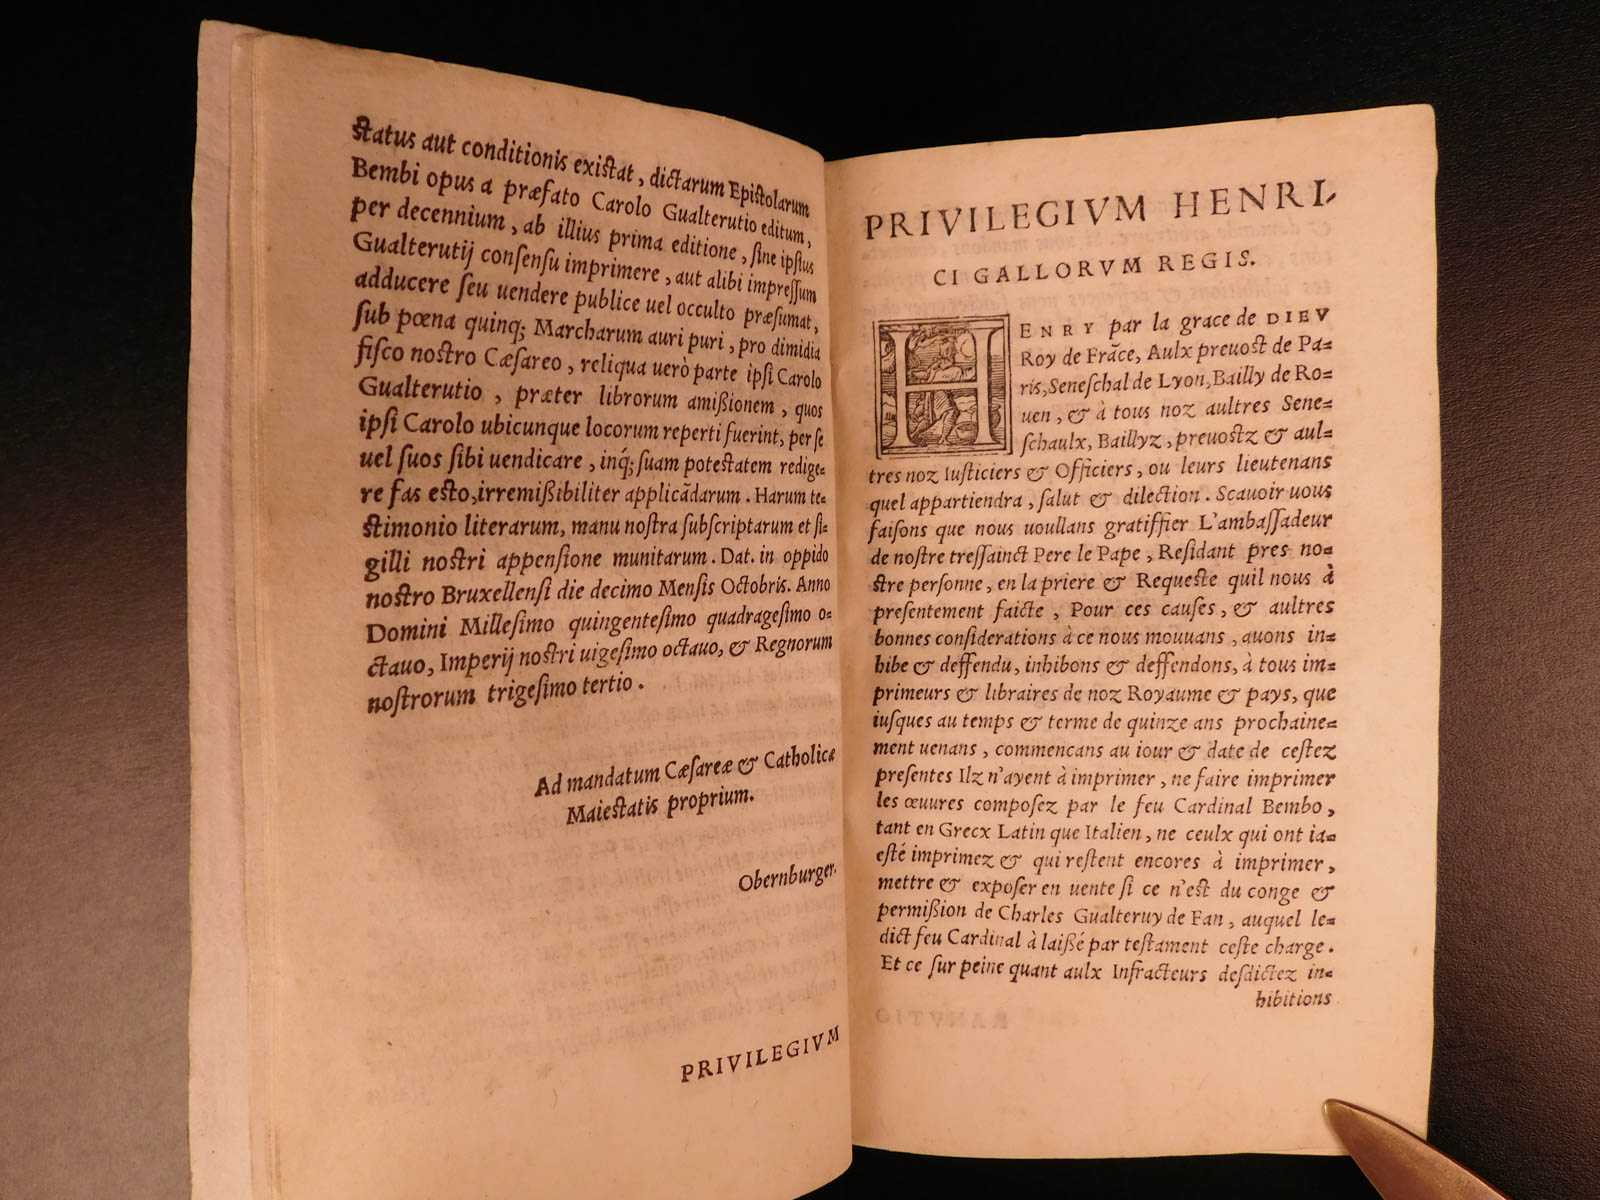 status aut conditionis existat, dictarum Epistolarum
Bembi opus a præfato Carolo Gualterutio editum,
per decennium, ab illius prima editione, sine ipsius
Gualterutij consensu imprimere, aut alibi impressum
adducere seu uendere publice uel occulto præsumat,
sub pœna quinq; Marcharum auri puri, pro dimidia
fisco nostro Cæsareo, reliqua uerò parte ipsi Carolo
Gualterutio, præter librorum amißionem, quos
ipsi Carolo ubicunque locorum reperti fuerint, per se
uel suos sibi uendicare, inq́; suam potestatem redige=
re fas esto, irremißibiliter applicãdarum. Harum te=
stimonio literarum, manu nostra subscriptarum et si=
gilli nostri appensione munitarum. Dat. in oppido
nostro Bruxellensi die decimo Mensis Octobris. Anno
Domini Millesimo quingentesimo quadragesimo o=
ctauo, Imperij nostri uigesimo octauo, & Regnorum
nostrorum trigesimo tertio.
Ad mandatum Cæsareæ & Catholicæ
Maiestatis proprium.
Obernburger.
PRIVILEGIVM
PRIVILEGIVM HENRI-
CI GALLORVM REGIS.
HENRY par la grace de DIEV
Roy de Frãce, Aulx preuost de Pa=
ris, Seneschal de Lyon, Bailly de Ro=
uen, & à tous noz aultres Sene=
schaulx, Baillyz, preuostz & aul=
tres noz Iusticiers & Officiers, ou leurs lieutenans
quel appartiendra, salut & dilection. Scauoir uous
faisons que nous uoullans gratiffier L'ambassadeur
de nostre tressainct Pere le Pape, Residant pres no=
stre personne, en la priere & Requeste quil nous à
presentement faicte, Pour ces causes, & aultres
bonnes considerations à ce nous mouuans, auons in=
hibe & deffendu, inhibons & deffendons, à tous im=
primeurs & libraires de noz Royaume & pays, que
iusques au temps & terme de quinze ans prochaine=
ment uenans, commencans au iour & date de cestez
presentes Ilz n'ayent à imprimer, ne faire imprimer
les œuures composez par le feu Cardinal Bembo,
tant en Grecx Latin que Italien, ne ceulx qui ont ia=
esté imprimez & qui restent encores à imprimer,
mettre & exposer en uente si ce n'est du conge &
permißion de Charles Gualteruy de Fan, auquel le=
dict feu Cardinal à laißé par testament ceste charge.
Et ce sur peine quant aulx Infracteurs desdictez in=
hibitions